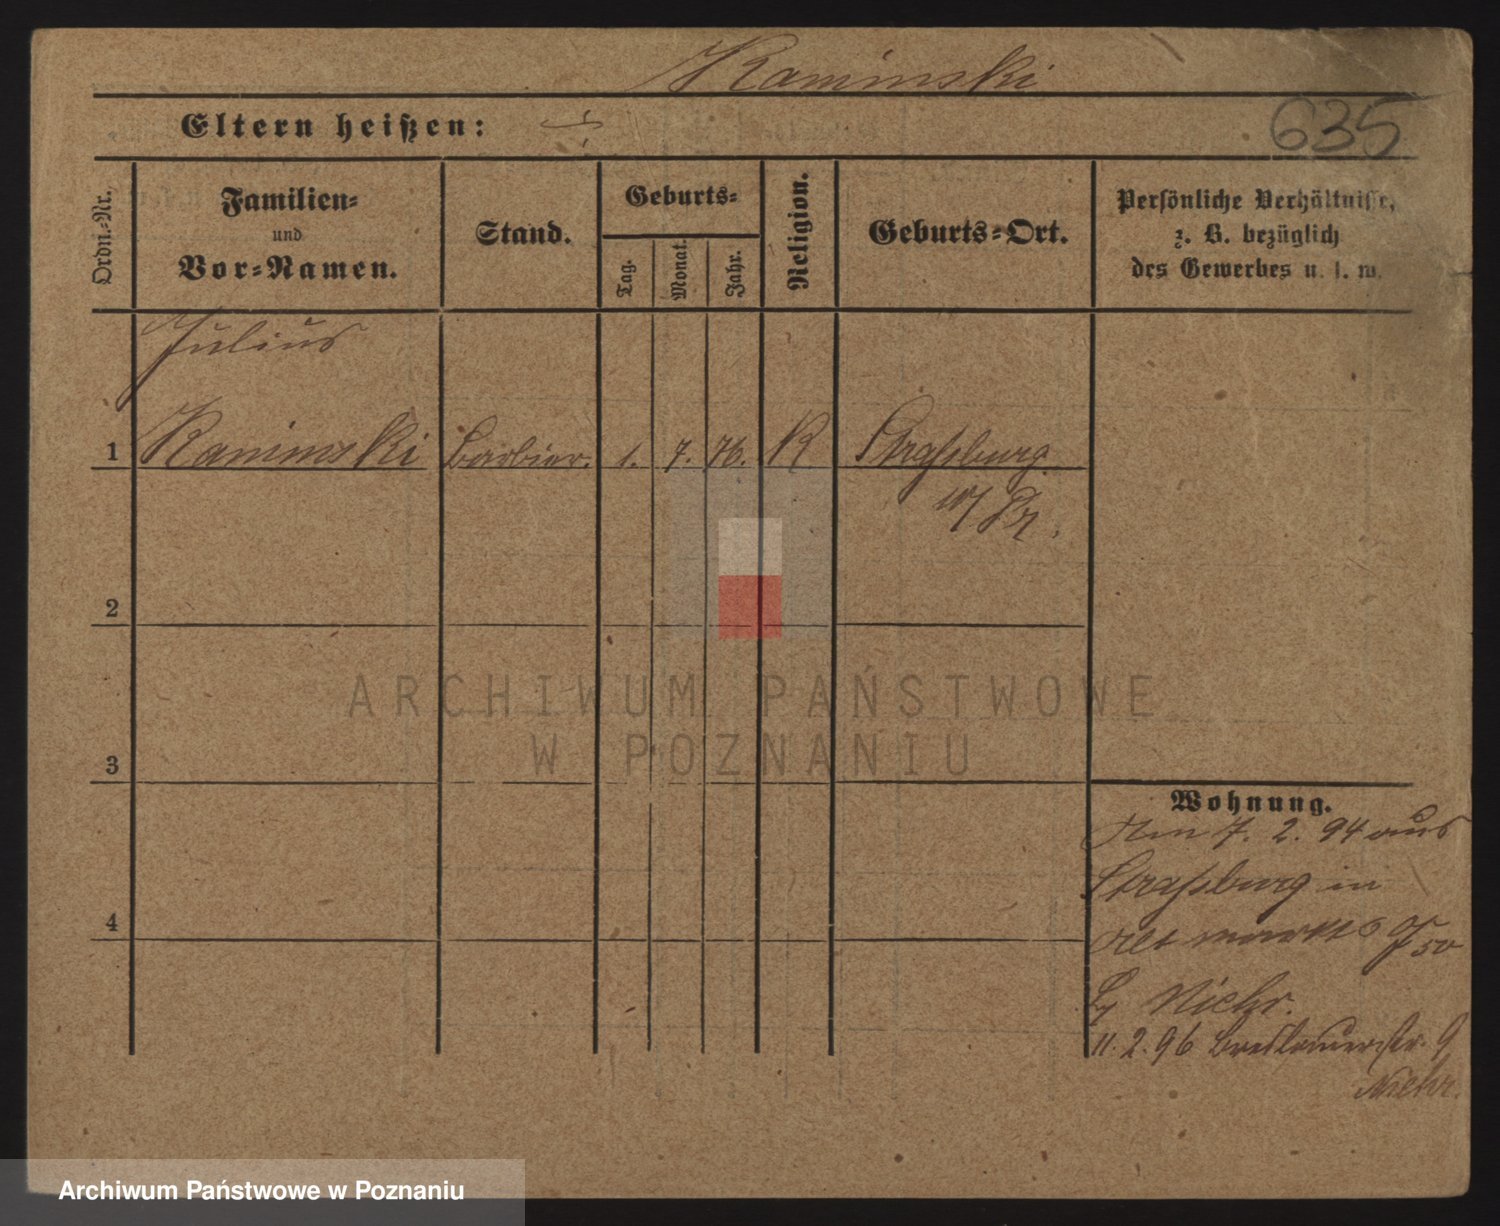 Kaminski
635
Eltern heißen:
Ordn.-Nr.
Familien-
und
Vor-Namen.
Stand.
Geburts-
Tag.
Monat.
Jahr.
Religion.
Geburts-Ort.
Persönliche Verhältnisse,
z. B. bezüglich
des Gewerbes u. s. w.
Julius
1 Kaminski Barbier. 1. 7. 76. K Straßburg
W/Pr.
2
3
4
Wohnung.
Am 7. 2. 94 aus
Straßburg in
Alt markt 50
Niehr.
11. 2. 96 Breslauerstr. 9
Niehr.
ARCHIWUM PAŃSTWOWE
W POZNANIU
Archiwum Państwowe w Poznaniu